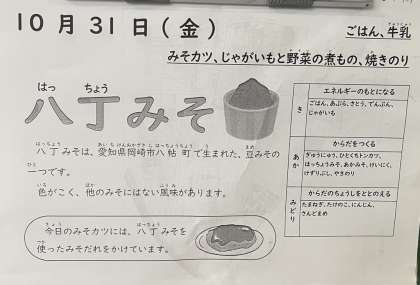 10月31日(金)
ごはん、牛乳
みそカツ、じゃがいもと野菜の煮もの、焼きのり
はっ ちょう
八丁みそ
八丁みそは、愛知県岡崎市八帖町で生まれた、豆みその
一つです。
色がこく、他のみそにはない風味があります。
今日のみそカツには、八丁みそを
使ったみそだれをかけています。
エネルギーのもとになる
き
ごはん、あぶら、さとう、でんぷん、
じゃがいも
からだをつくる
あか
ぎゅうにゅう、ひとくちトンカツ、
はっちょうみそ、あかみそ、けいにく、
けずりぶし、やきのり
からだのちょうしをととのえる
みどり
たまねぎ、たけのこ、にんじん、
さんどまめ